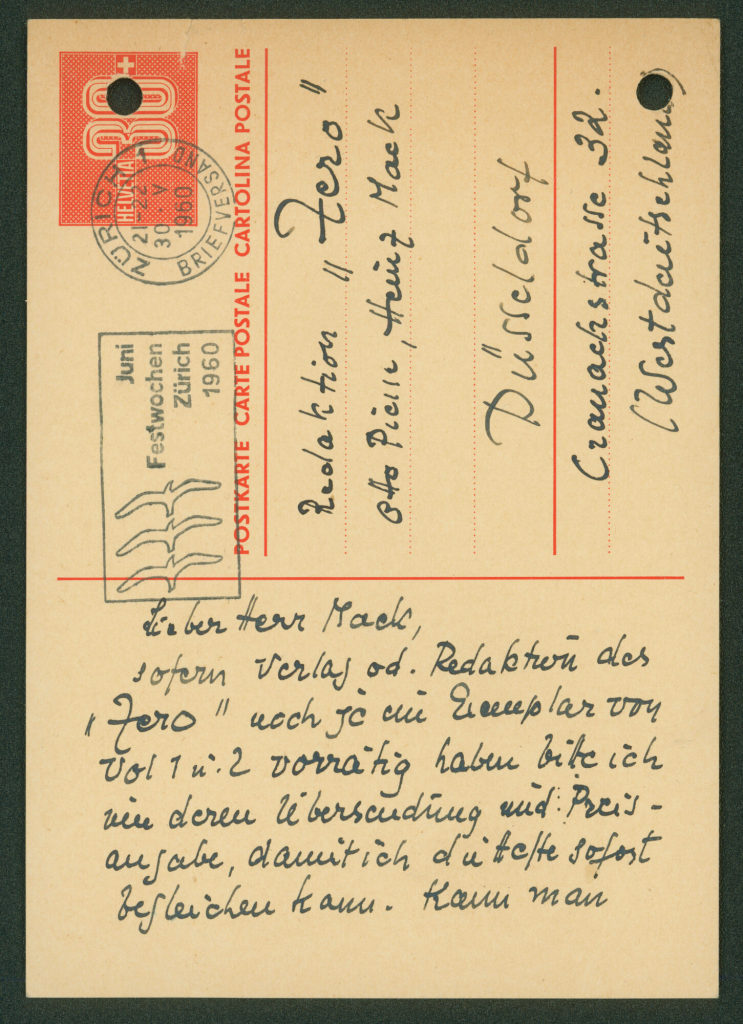 30+
HELVETIA
ZÜRICH 1
21-22
30. V
1960
BRIEFVERSAND
Juni
Festwochen
Zürich
1960
POSTKARTE CARTE POSTALE CARTOLINA POSTALE
Redaktion "Zero"
Otto Piene, Heinz Mack
Düsseldorf
Cranachstrasse 32.
(Westdeutschland)
Lieber Herr Mack,
sofern Verlag od. Redaktion des
"Zero" noch je ein Exemplar von
Vol 1 u. 2 vorrätig haben bitte ich
um deren Übersendung und Preis-
angabe, damit ich die Hefte sofort
begleichen kann. Kann man